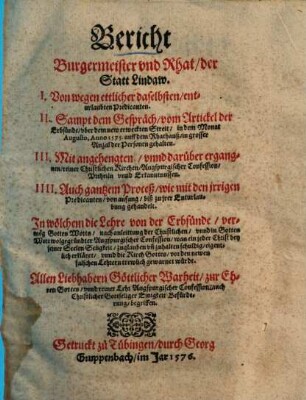 Bericht
Burgermeister vnd Rhat / der
Statt Lindaw.
I. Von wegen ettlicher daselbsten / ent-
urlaubten Predicanten.
II. Sampt dem Gespräch / vom Artickel der
Erbsünde / vber dem new erweckten Streit / in dem Monat
Augusto, Anno 1575. auff dem Rhathauß / in grosser
Anzal der Personen gehalten.
III. Mit angehengten / vnnd darüber ergang-
nen / reiner Christlichen Kirchen / Augspurgischer Confession /
Vrtheiln vnd Erkanntnussen.
IIII. Auch gantzem Proceß / wie mit den jrrigen
Predicanten / von anfang / biß zu jrer Enturlau-
bung gehandelt.
In wölchem die Lehre von der Erbsünde / ver-
mög Gottes Worts / nach anleitung der Christlichen / vnnd in Gottes
Wort wolgegründeter Augspurgischer Confession / was ein jeder Christ bey
seiner Seelen Seligkeit / zuglauben vnd zuhalten schuldig / eigent-
lich erkläret / vnnd die Kirch Gottes / vor den newen
falschen Lehrern trewlich gewarnet würdt.
Allen Liebhabern Göttlicher Warheit / zur Eh-
ren Gottes / vnnd reiner Lehr Augspurgischer Confession / auch
Christlicher Gottseliger Einigkeit Befürde-
rung / begriffen.
Getruckt zu Tübingen / durch Georg
Gruppenbach / im Jar 1576.